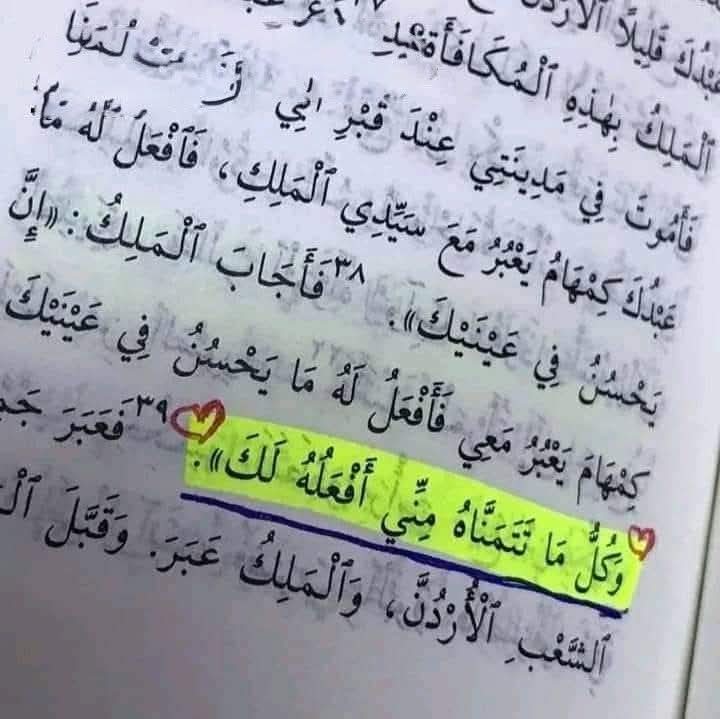 عَبْدُكَ قَلِيلًا
ٱلْمَلِكُ بِهٰذِهِ
فَأَمُوتَ فِي مَدِينَتِي عِنْدَ قَبْرِ
عَبْدُكَ كِمْهَامُ يَعْبُرُ مَعَ سَيِّدِي ٱلْمَلِكِ، فَٱفْعَلْ لَهُ مَا
يَحْسُنُ فِي عَيْنَيْكَ». ٣٨ فَأَجَابَ ٱلْمَلِكُ: «إِنَّ
كِمْهَامَ يَعْبُرُ مَعِي فَأَفْعَلُ لَهُ مَا يَحْسُنُ فِي عَيْنَيْكَ
وَكُلُّ مَا تَتَمَنَّاهُ مِنِّي أَفْعَلُهُ لَكَ». ٣٩ فَعَبَرَ
ٱلشَّعْبِ ٱلْأُرْدُنَّ، وَٱلْمَلِكُ عَبَرَ. وَقَبَّلَ